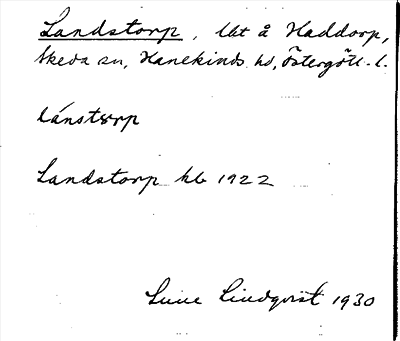 Landstorp, lht å Haddorp,
Skeda sn, Hanekinds hd, Östergötl. l.
lánstorp
Landstorp kb 1922
Sune Lindqvist 1930